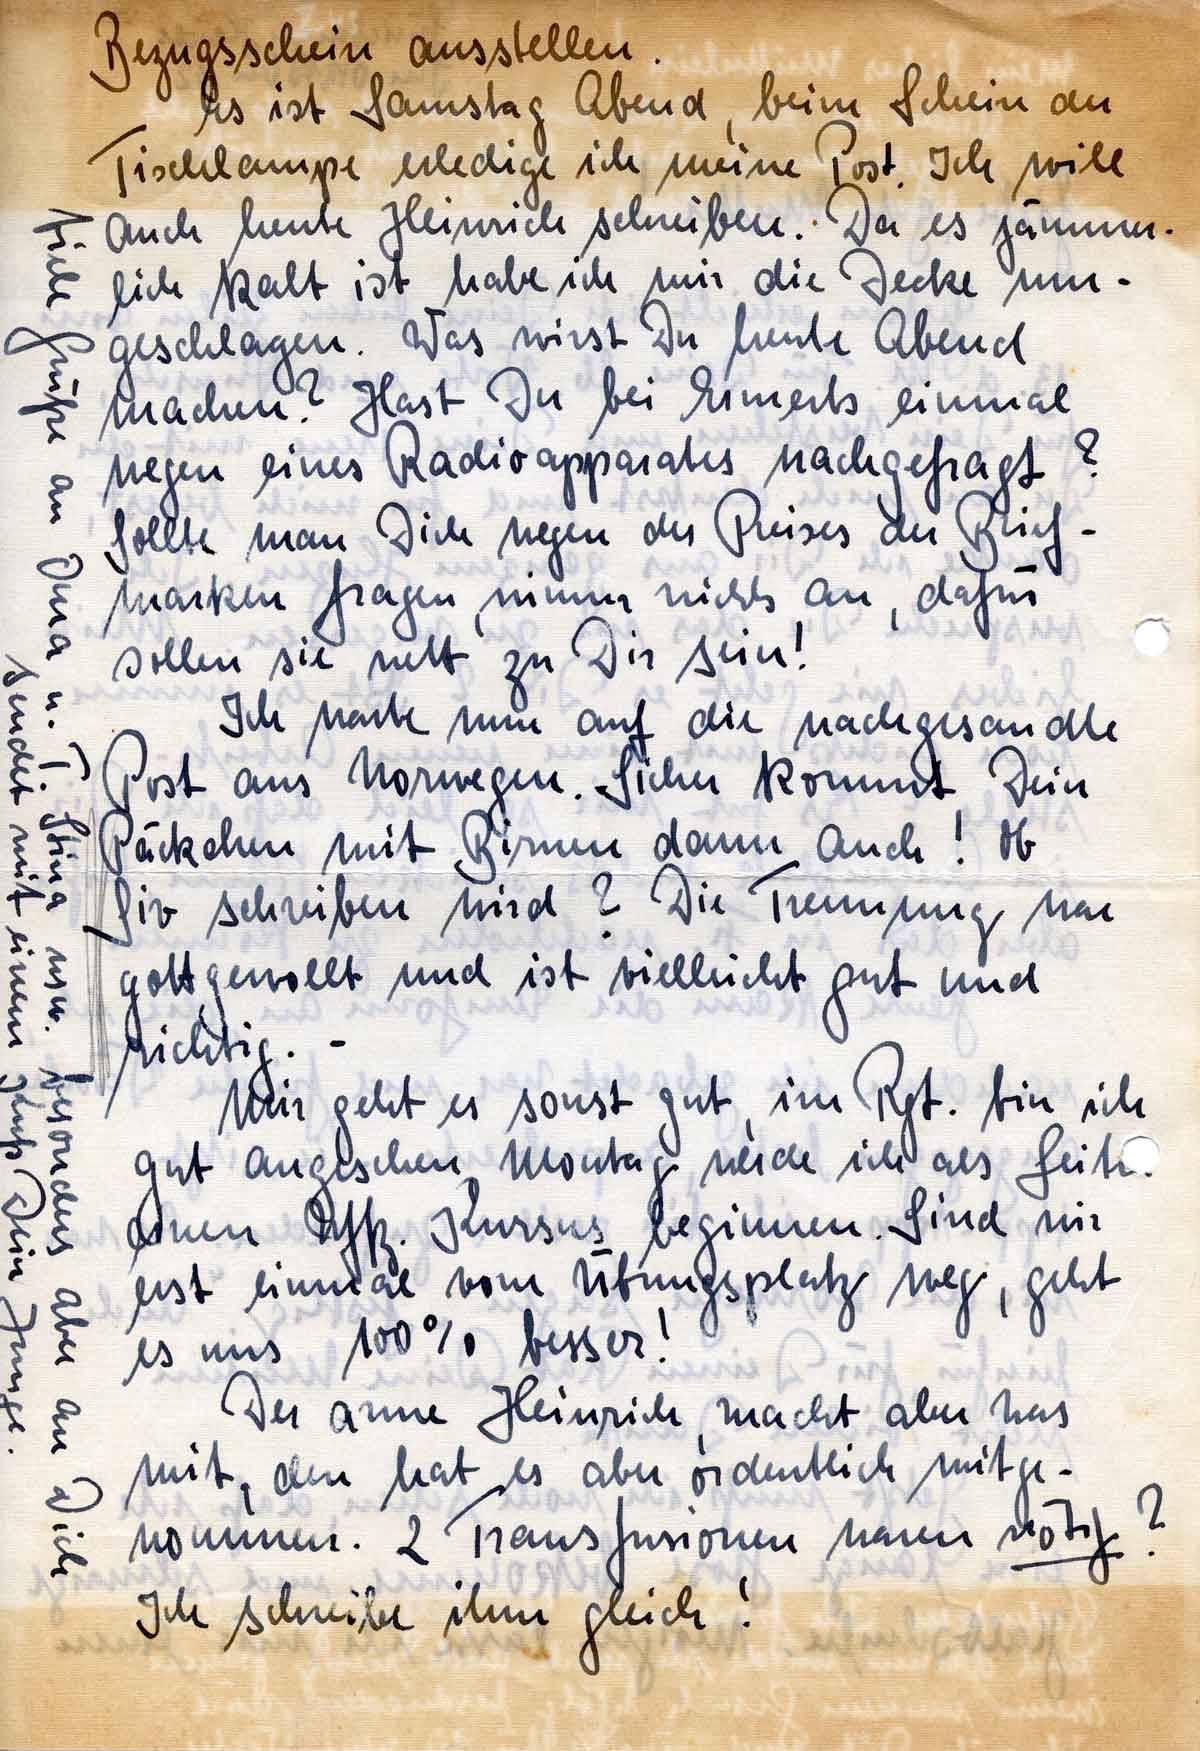 Bezugsschein ausstellen.
Es ist Samstag Abend, beim Schein der
Tischlampe erledige ich meine Post. Ich will
auch heute Heinrich schreiben. Da es jämmer-
lich kalt ist habe ich mir die Decke um-
geschlagen. Was wirst Du heute Abend
machen? Hast Du bei Emmerts einmal
wegen eines Radioapparates nachgefragt?
Sollte man Dich wegen des Preises der Brief-
marken fragen, nimm nichts an, dafür
sollen sie nett zu Dir sein!
Ich warte nun auf die nachgesandte
Post aus Norwegen. Sicher kommt Dein
Päckchen mit Birnen dann auch! Ob
Siv schreiben wird? Die Trennung war
gottgewollt und ist vielleicht gut und
richtig. -
Mir geht es sonst gut, im Rgt. bin ich
gut angesehen, Montag werde ich als Leiter
einen Uffz. Kursus beginnen. Sind wir
erst einmal vom Übungsplatz weg, geht
es uns 100% besser!
Der arme Heinrich macht aber was
mit, den hat es aber ordentlich mitge-
nommen. 2 Transfusionen waren nötig?
Ich schreibe ihm gleich!
Viele Grüße an Oma u. T. Stina usw. besonders aber an Dich
sendet mit einem Kuß Dein Junge.